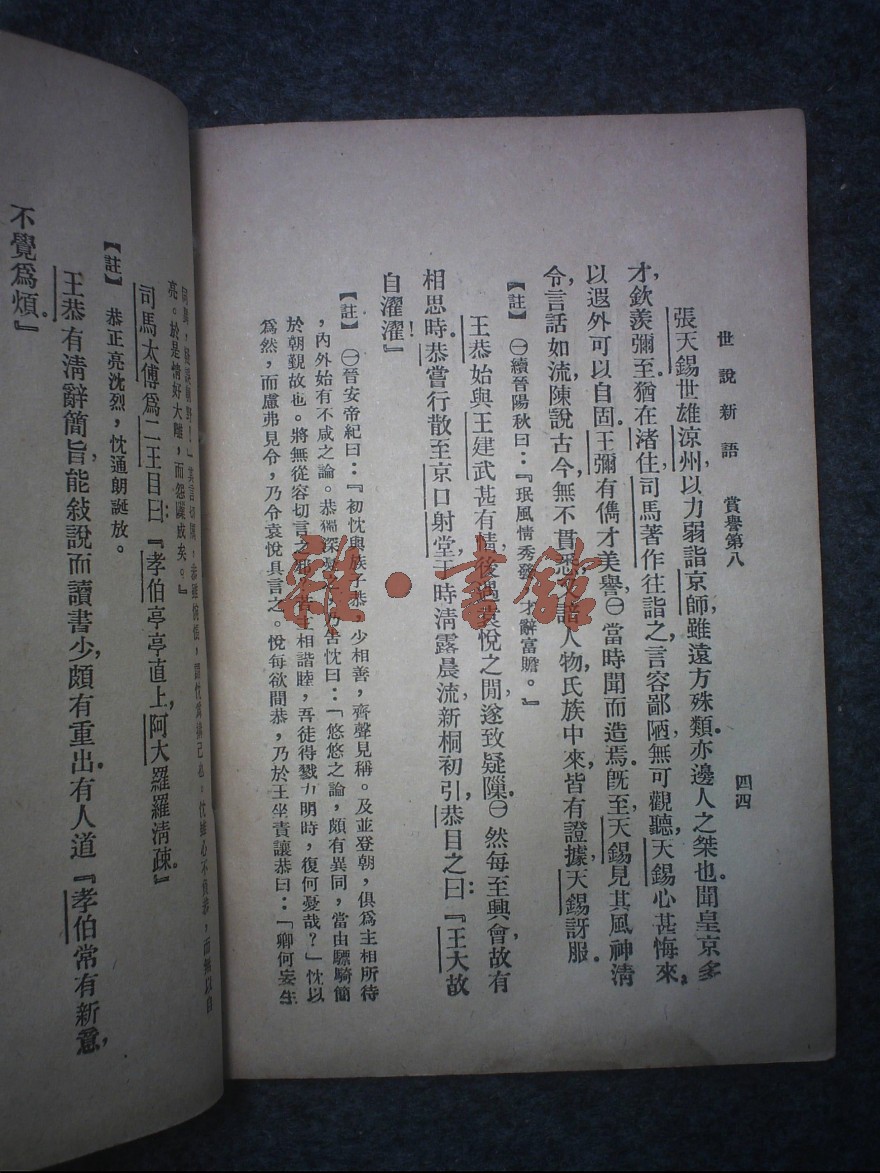 世說新語　賞譽第八　四四
張天錫世雄涼州,以力弱詣京師,雖遠方殊類,亦邊人之桀也。聞皇京多
才,欽羨彌至。猶在渚住,司馬著作往詣之,言容鄙陋,無可觀聽,天錫心甚悔來,
以遐外可以自固。王彌有儁才美譽㊀當時聞而造焉。旣至,天錫見其風神淸
令,言話如流,陳說古今,無不貫悉。又諳人物氏族中來,皆有證據,天錫訝服。
【註】㊀續晉陽秋曰:『珉風情秀發,才辭富贍。』
王恭始與王建武甚有情,後遇袁悅之閒,遂致疑隟。㊀然每至興會,故有
相思時。恭嘗行散至京口射堂,于時淸露晨流,新桐初引,恭目之曰:『王大故
自濯濯!』
【註】㊀晉安帝紀曰:『初忱與族子恭,少相善,齊聲見稱。及並登朝,俱爲主相所待
,內外始有不咸之論。恭獨深乃告忱曰:「悠悠之論,頗有異同,當由驃騎簡
於朝覲故也。將無從容切言之若主相諧睦,吾徒得戮力明時,復何憂哉?」忱以
爲然,而慮弗見令,乃令袁悅具言之。悅每欲間恭,乃於王坐責讓恭曰:「卿何妄生
亮。於是情好大離,而怨隙成矣。』
司馬太傅爲二王目曰:『孝伯亭亭直上,阿大羅羅淸疎。』
【註】恭正亮沈烈,忱通朗誕放。
王恭有淸辭簡旨,能敍說而讀書少,頗有重出。有人道『孝伯常有新意,
不覺爲煩。』
雜·書館